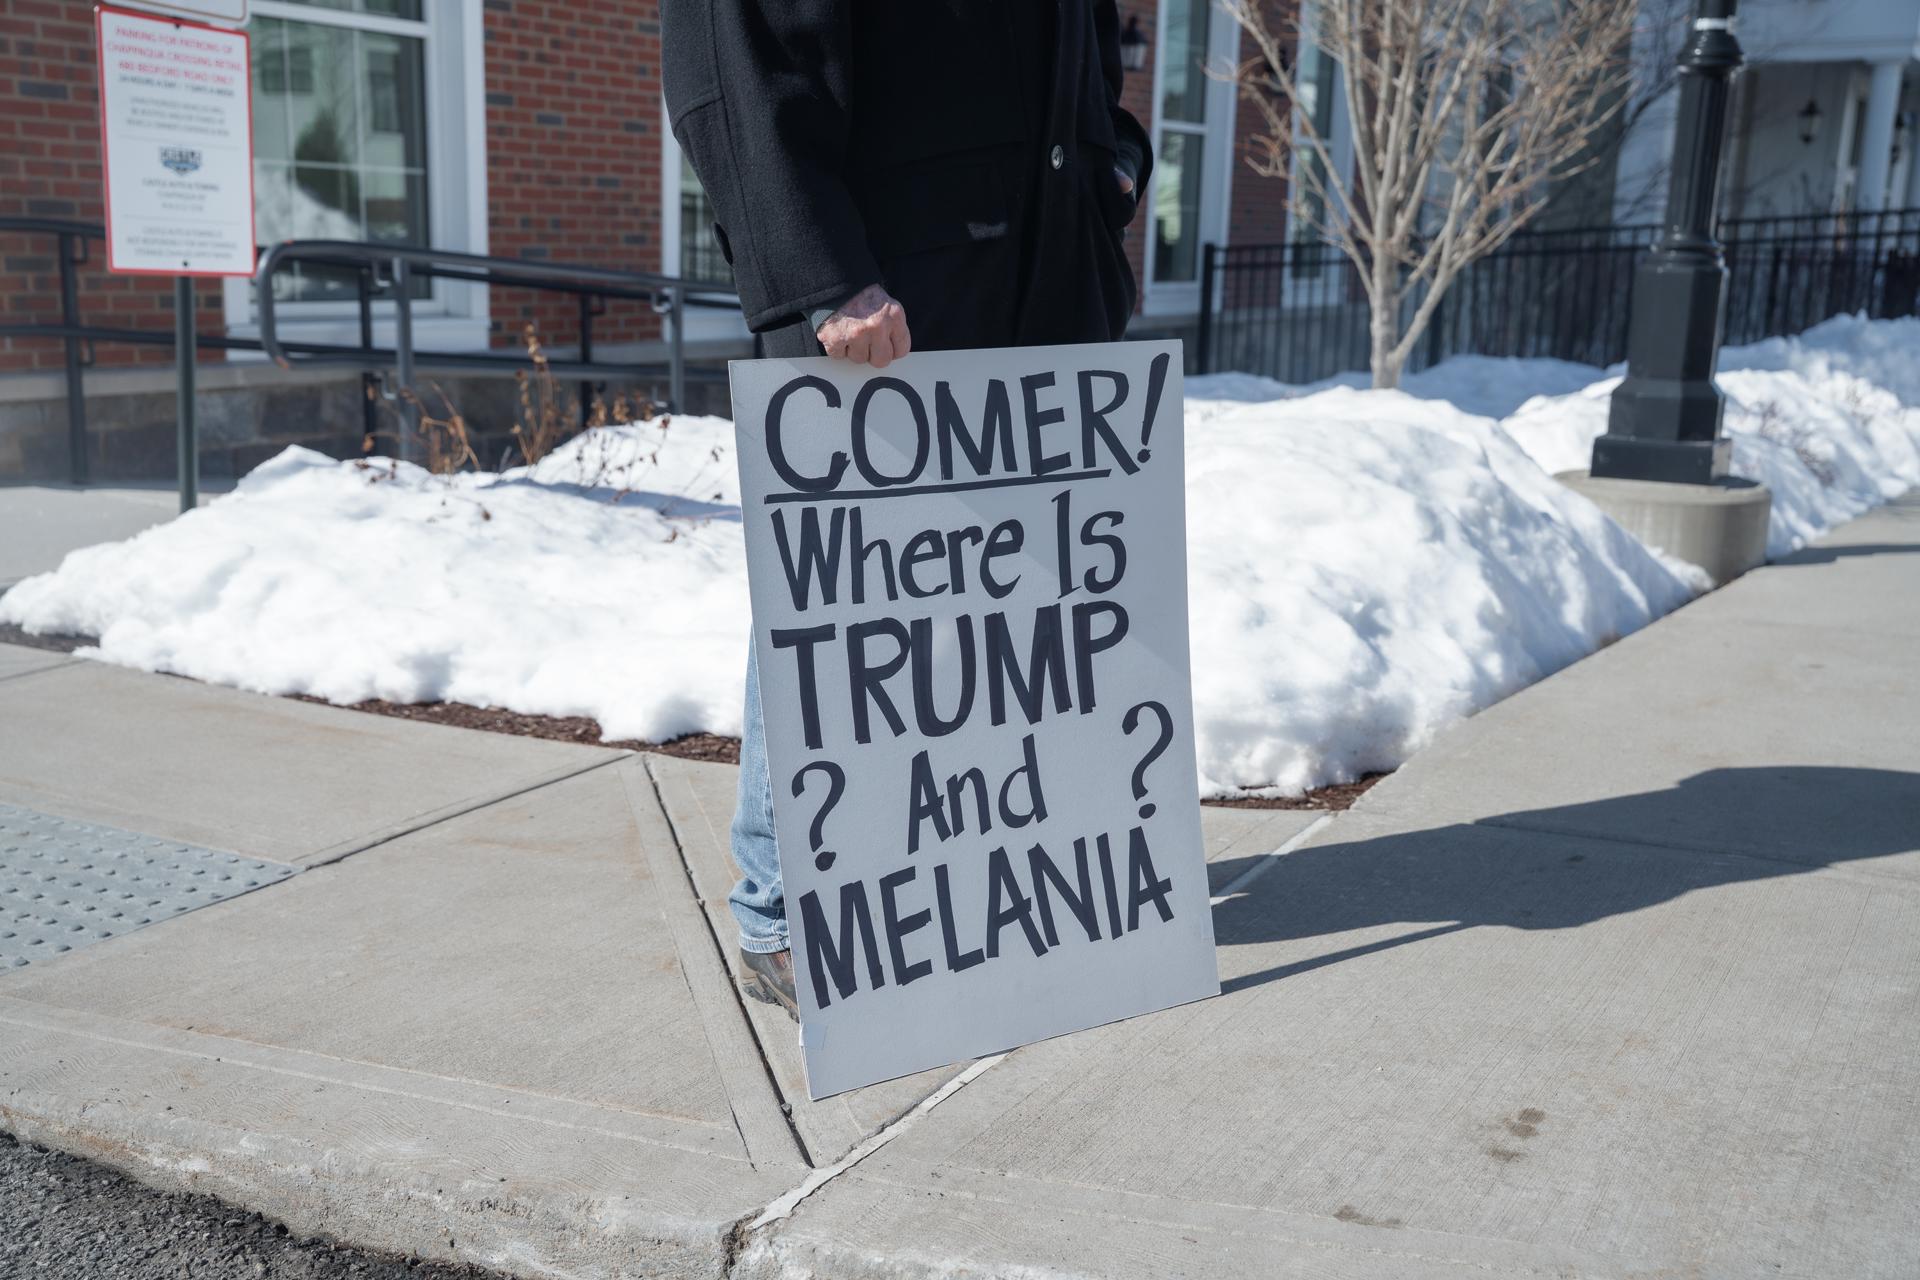 PARKING FOR PATRONS OF
CHAPPAQUA CROSSING RETAIL
480 BEDFORD ROAD ONLY
24 HOURS A DAY / 7 DAYS A WEEK
CASTLE
CASTLE AUTO & TOWING
COMER!
Where Is
TRUMP
? And ?
MELANIA